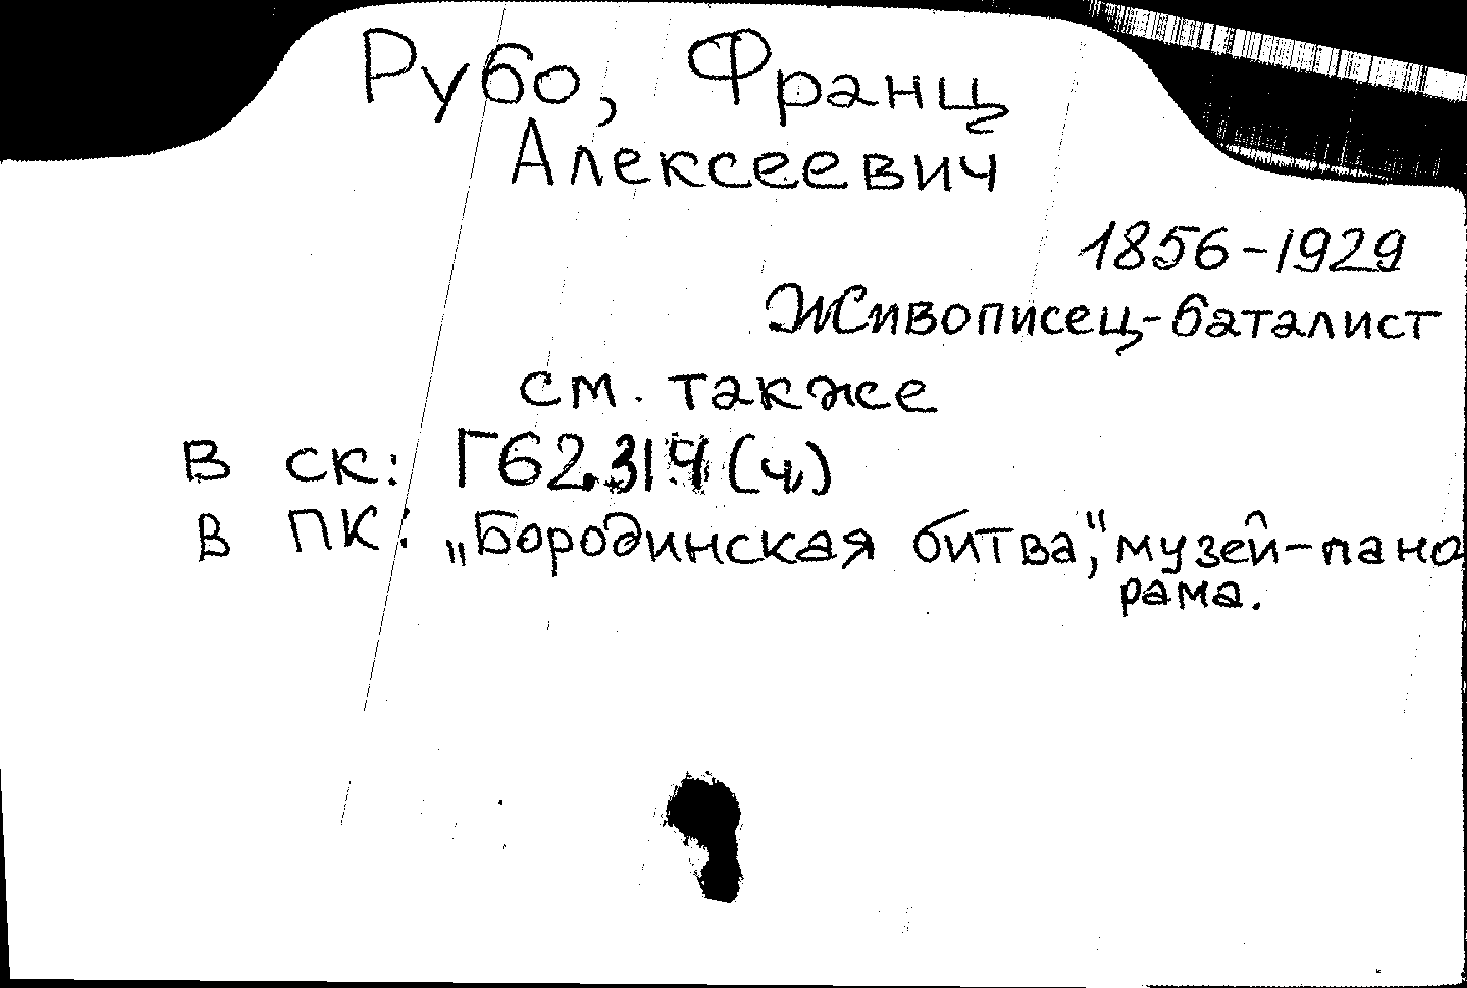 Рубо, Франц
Алексеевич
1856-1929
Живописец-баталист
см. также
В СК: Г62.319(ч)
В ПК: „Бородинская битва," музей-пано
рама.